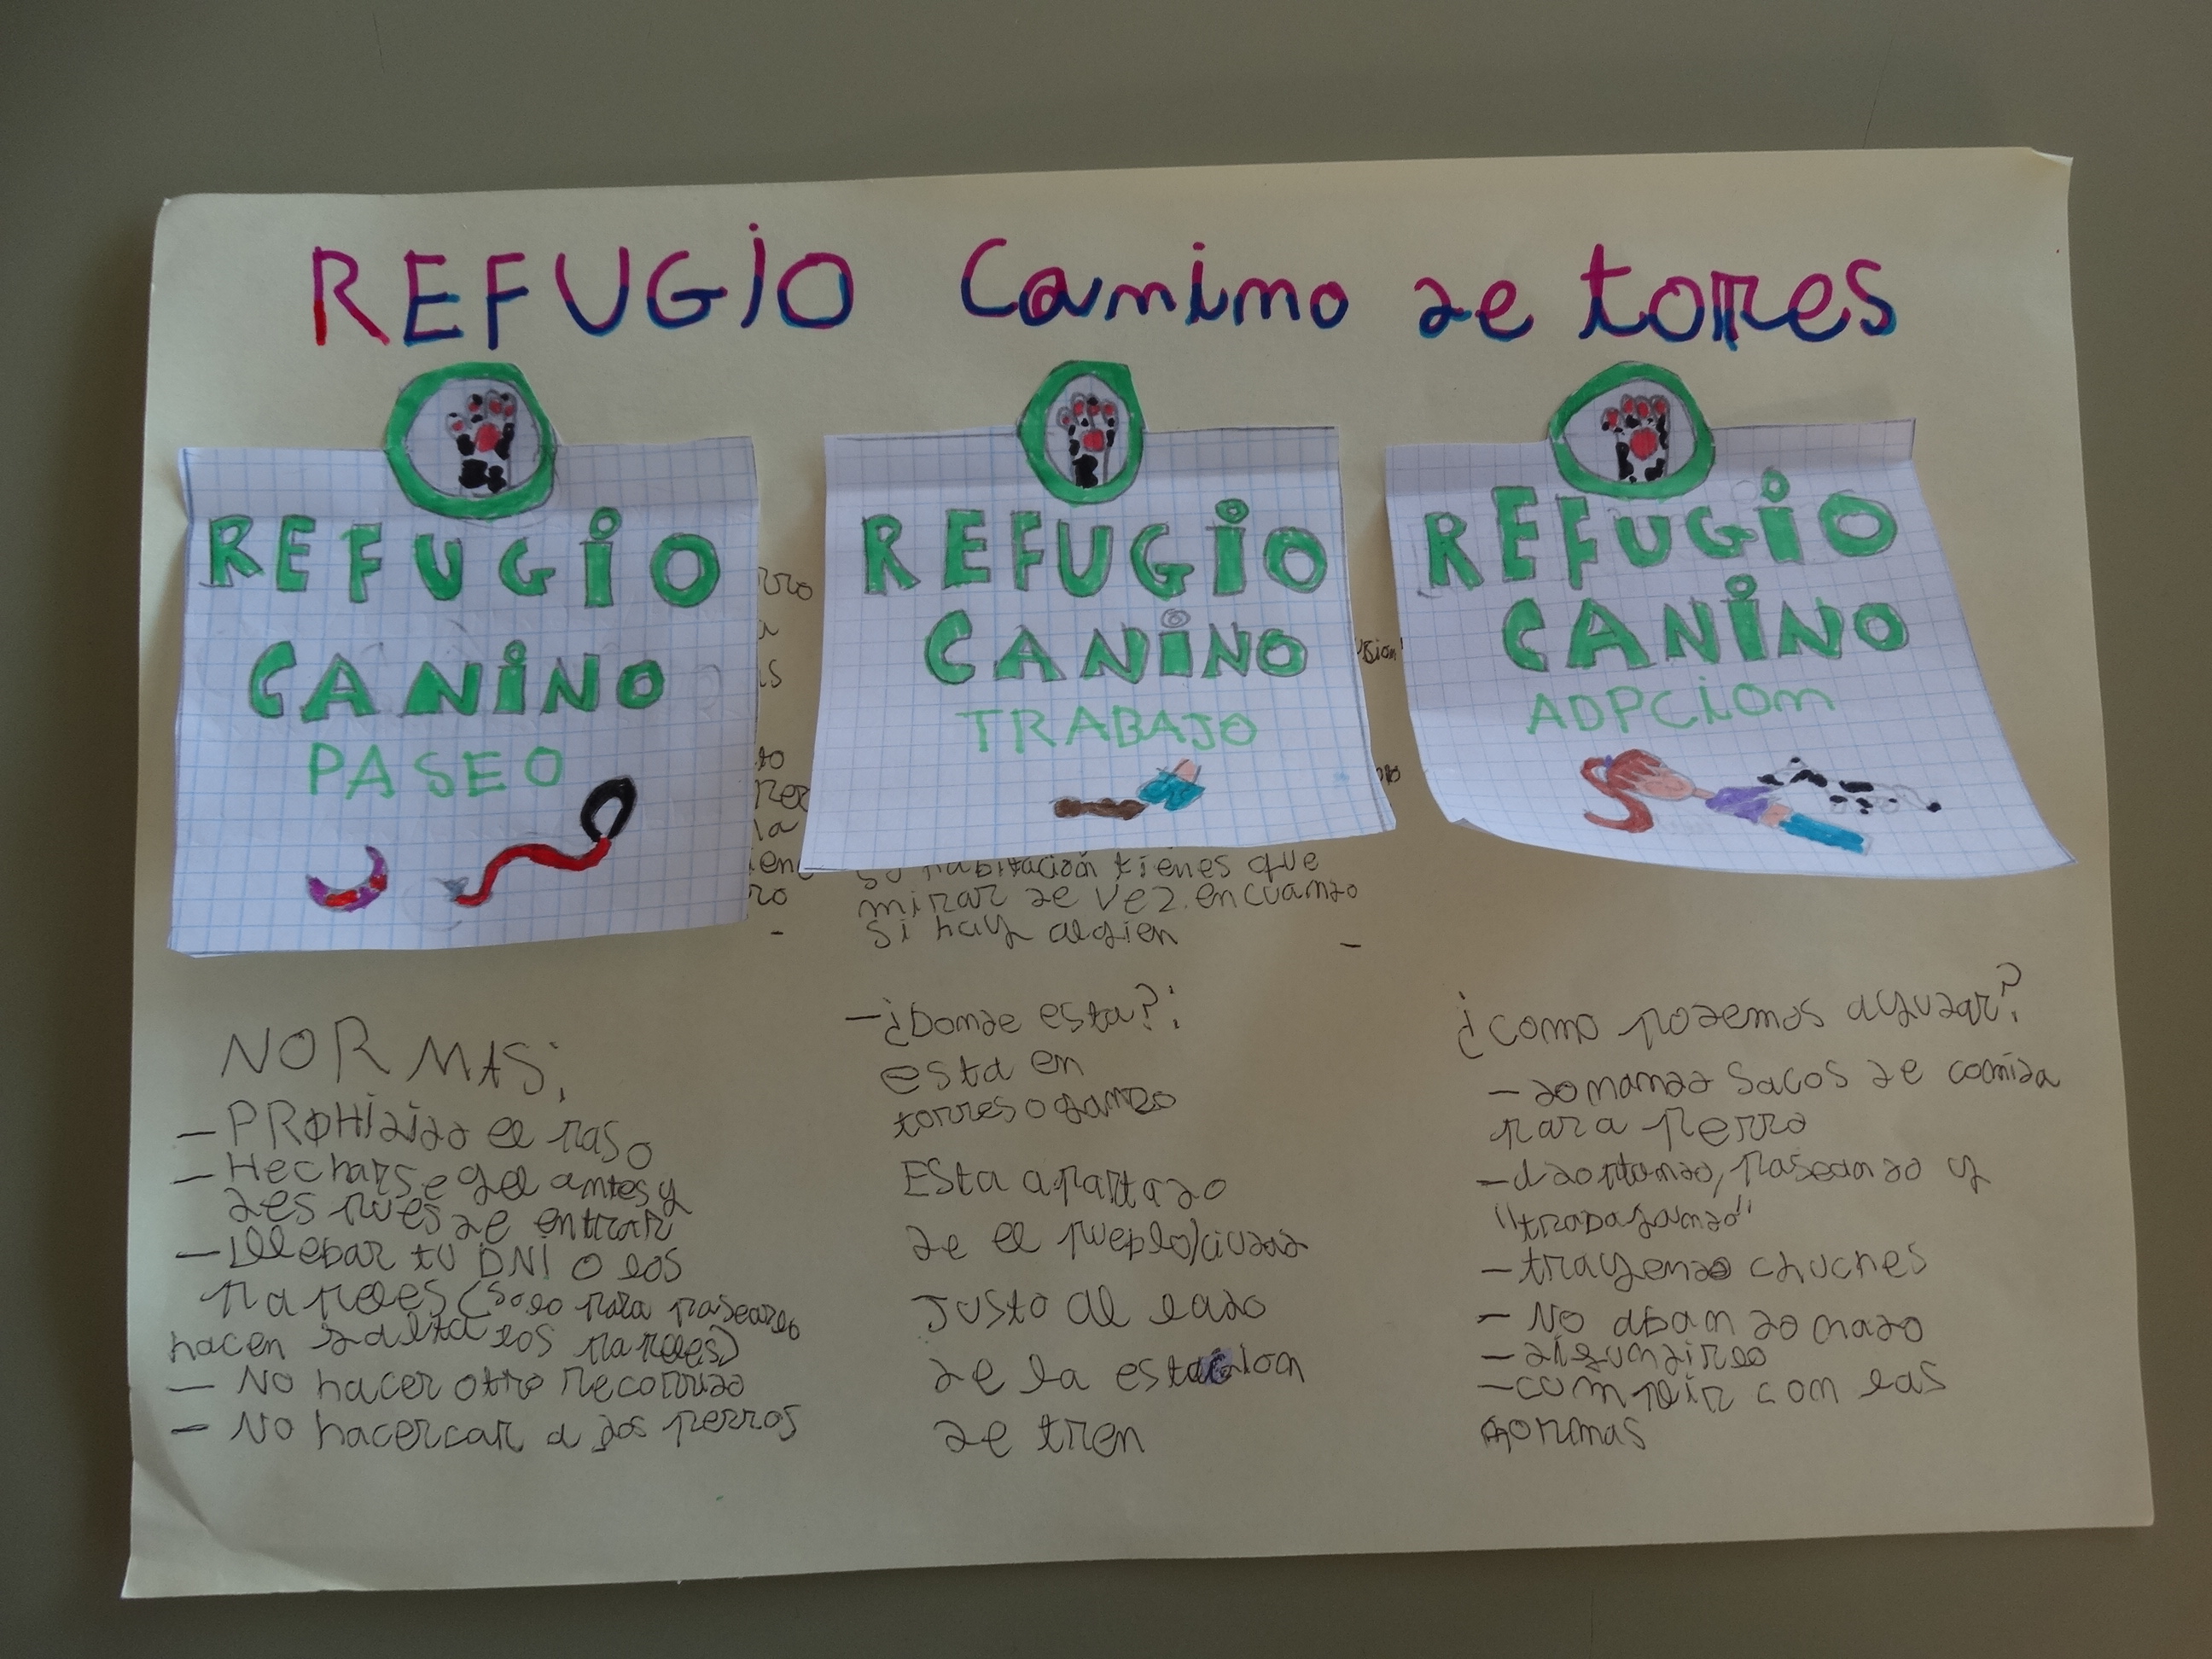 REFUGIO Camino de torres
REFUGIO
CANINO
PASEO
REFUGIO
CANINO
TRABAJO
REFUGIO
CANINO
ADPCION
su habitación tienes que
mirar de vez.en cuando
si hay algien
NORMAS:
- PROHIBIDO el paso
- Hecharse gel antes y
despues de entrar
- Llebar tu DNI o los
papeles (solo para paseoro
hacen falta los papeles)
- No hacer otro recorrido
- No hacercar a dos perros
-¿Donde esta?:
esta en
torres o gando
Esta apartado
de el pueblo/ciudad
Justo al lado
de la estacion
de tren
¿como podemos ayudar?
- donando sacos de comida
para perro
- adoptando, paseando y
"trabajando"
- trayendo chuches
- No abandonado
- cumplir con las
normas